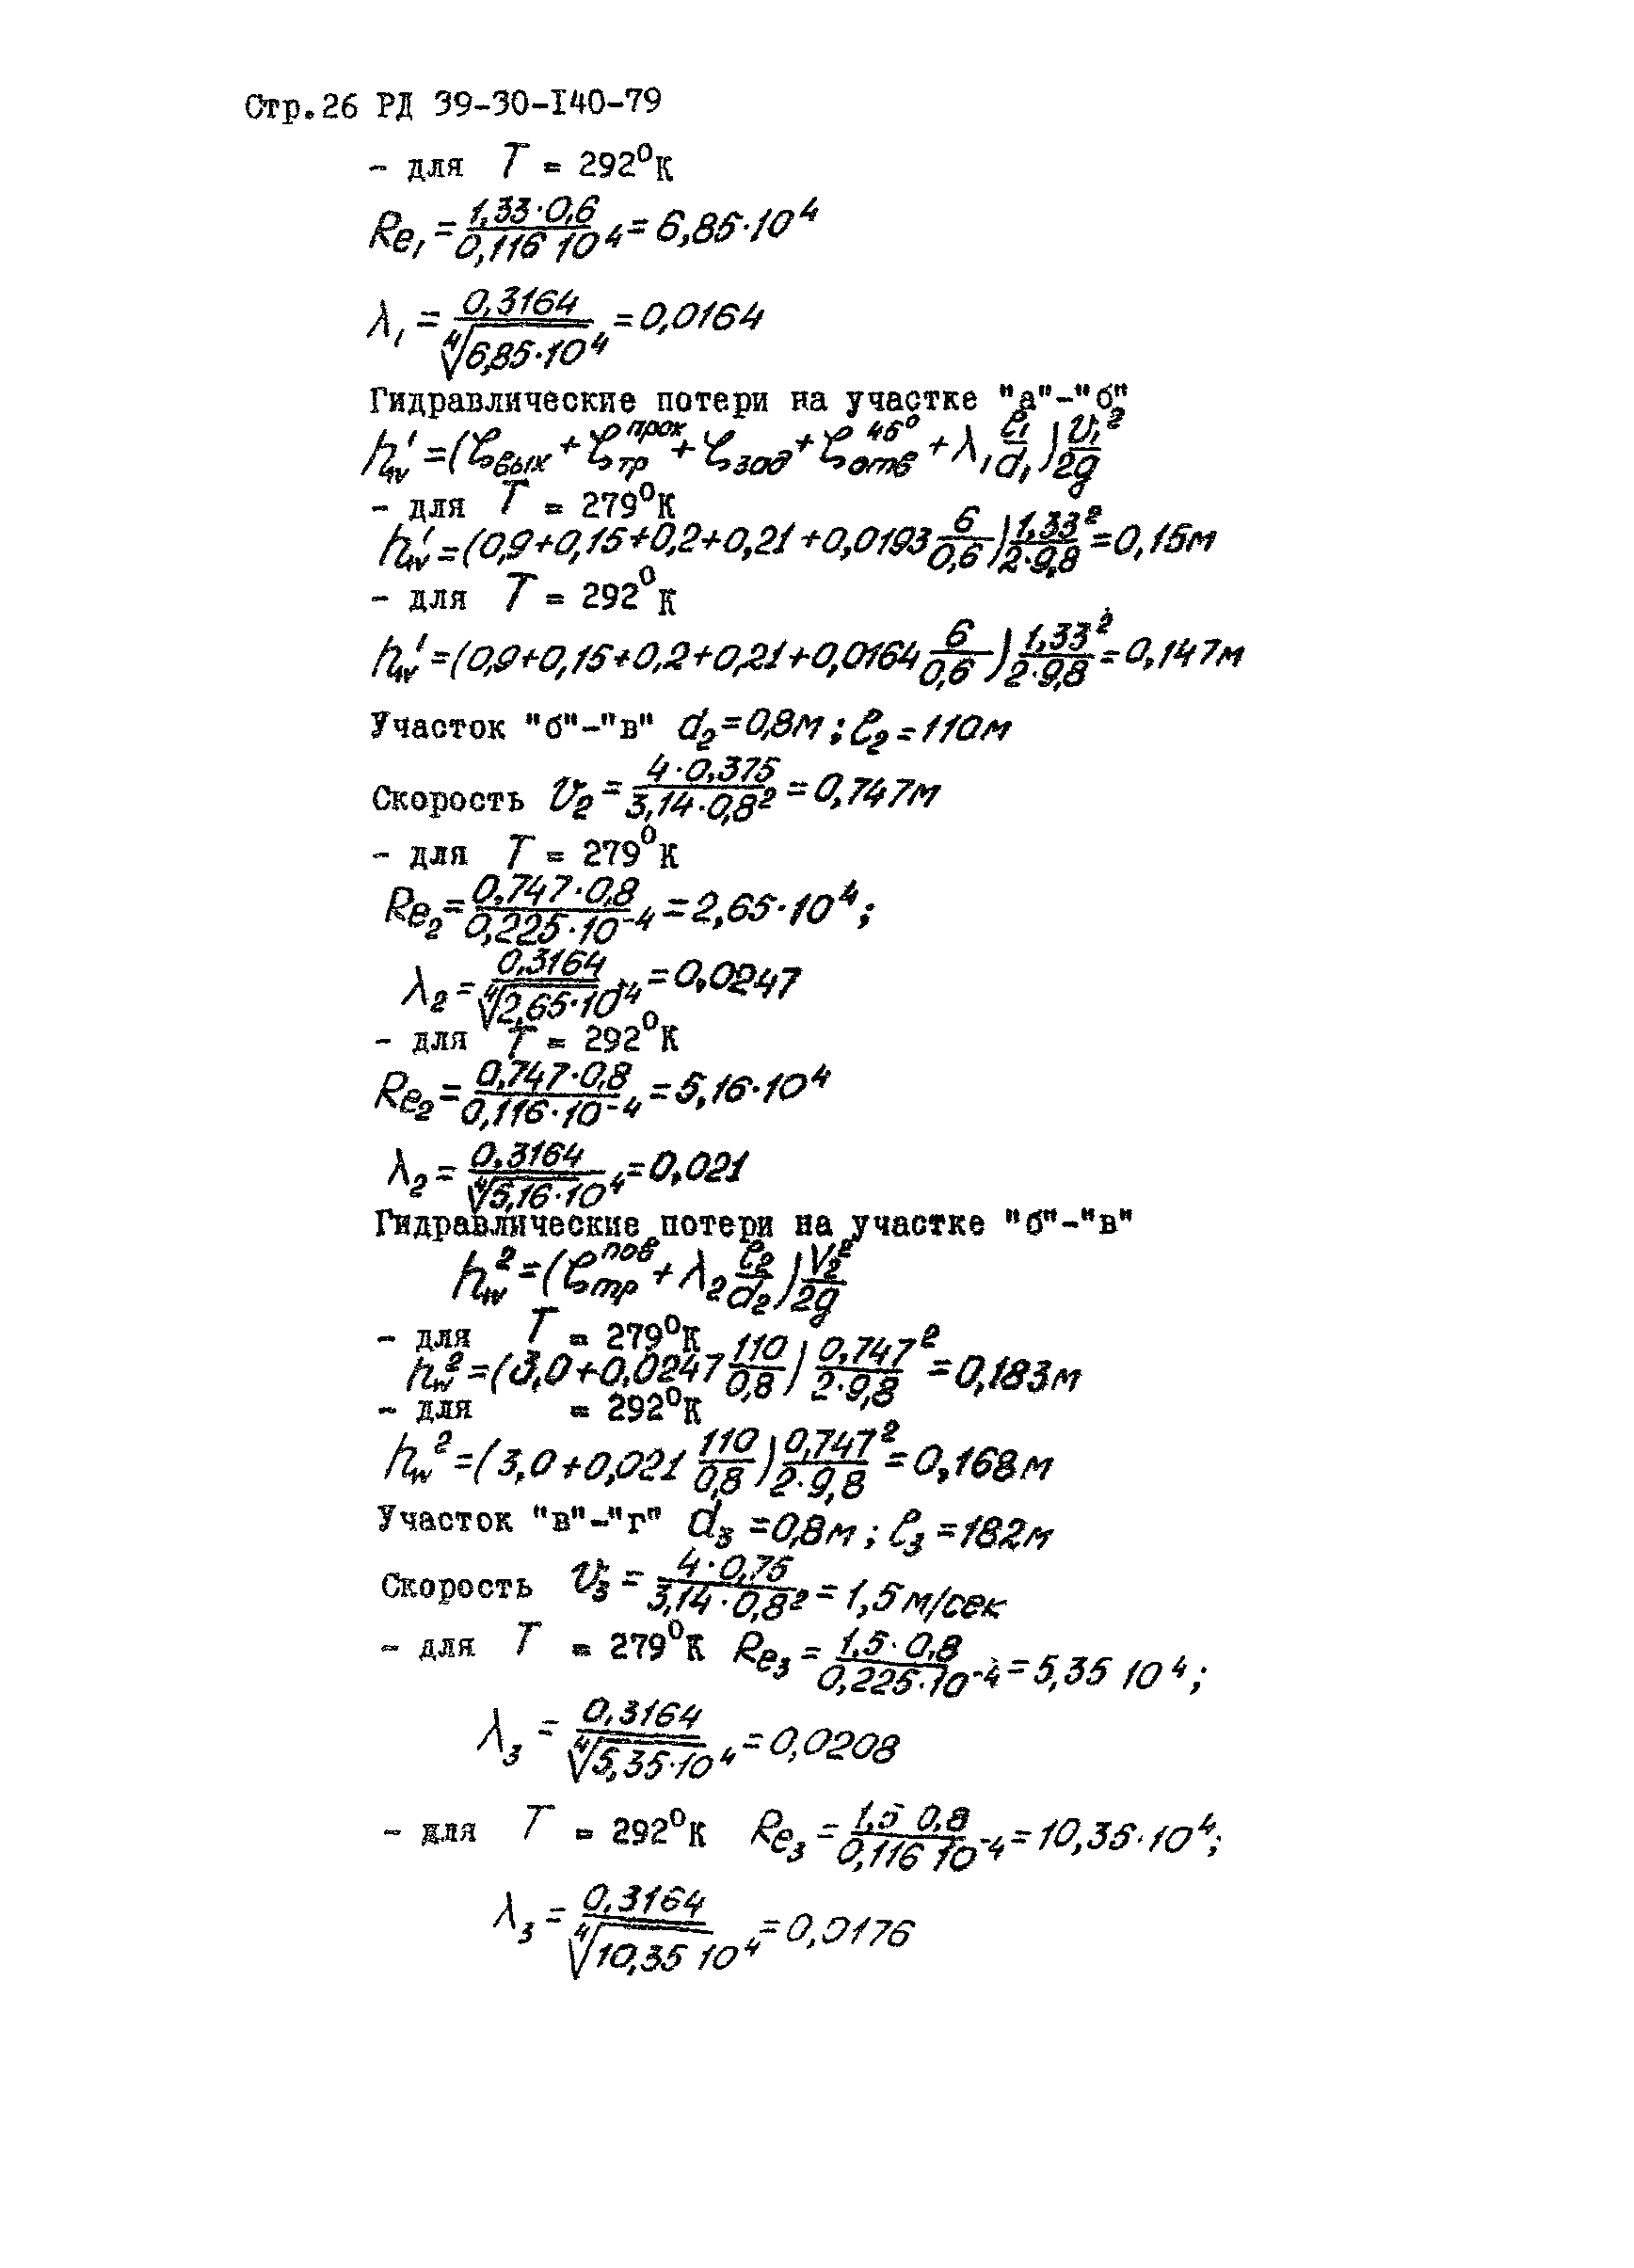 Стр.26 РД 39-30-I40-79
- для T = 292⁰К
Re₁ = 1,33·0,6 / 0,116 10⁴ = 6,85·10⁴
λ₁ = 0,3164 / ∜6,85·10⁴ = 0,0164
Гидравлические потери на участке "а"-"б"
h_w¹ = (ζвых + ζтр^прок + ζзад + ζотв^45⁰ + λ₁ ℓ₁/d₁) v₁²/2g
- для T = 279⁰К
h_w¹ = (0,9+0,15+0,2+0,21+0,0193 6/0,6) 1,33²/2·9,8 = 0,15м
- для T = 292⁰К
h_w¹ = (0,9+0,15+0,2+0,21+0,0164 6/0,6) 1,33²/2·9,8 = 0,147м
Участок "б"-"в" d₂=0,8м; ℓ₂=110м
Скорость v₂ = 4·0,375 / 3,14·0,8² = 0,747м
- для T = 279⁰К
Re₂ = 0,747·0,8 / 0,225·10⁻⁴ = 2,65·10⁴;
λ₂ = 0,3164 / ∜2,65·10⁴ = 0,0247
- для T = 292⁰К
Re₂ = 0,747·0,8 / 0,116·10⁻⁴ = 5,16·10⁴
λ₂ = 0,3164 / ∜5,16·10⁴ = 0,021
Гидравлические потери на участке "б"-"в"
h_w² = (ζтр^пов + λ₂ ℓ₂/d₂) V₂²/2g
- для T = 279⁰К
h_w² = (3,0+0,0247 110/0,8) 0,747²/2·9,8 = 0,183м
- для = 292⁰К
h_w² = (3,0+0,021 110/0,8) 0,747²/2·9,8 = 0,168м
Участок "в"-"г" d₃=0,8м; ℓ₃=182м
Скорость v₃ = 4·0,75 / 3,14·0,8² = 1,5м/сек
- для T = 279⁰К Re₃ = 1,5·0,8 / 0,225·10⁻⁴ = 5,35 10⁴;
λ₃ = 0,3164 / ∜5,35·10⁴ = 0,0208
- для T = 292⁰К Re₃ = 1,5 0,8 / 0,116 10⁻⁴ = 10,35·10⁴;
λ₃ = 0,3164 / ∜10,35 10⁴ = 0,0176